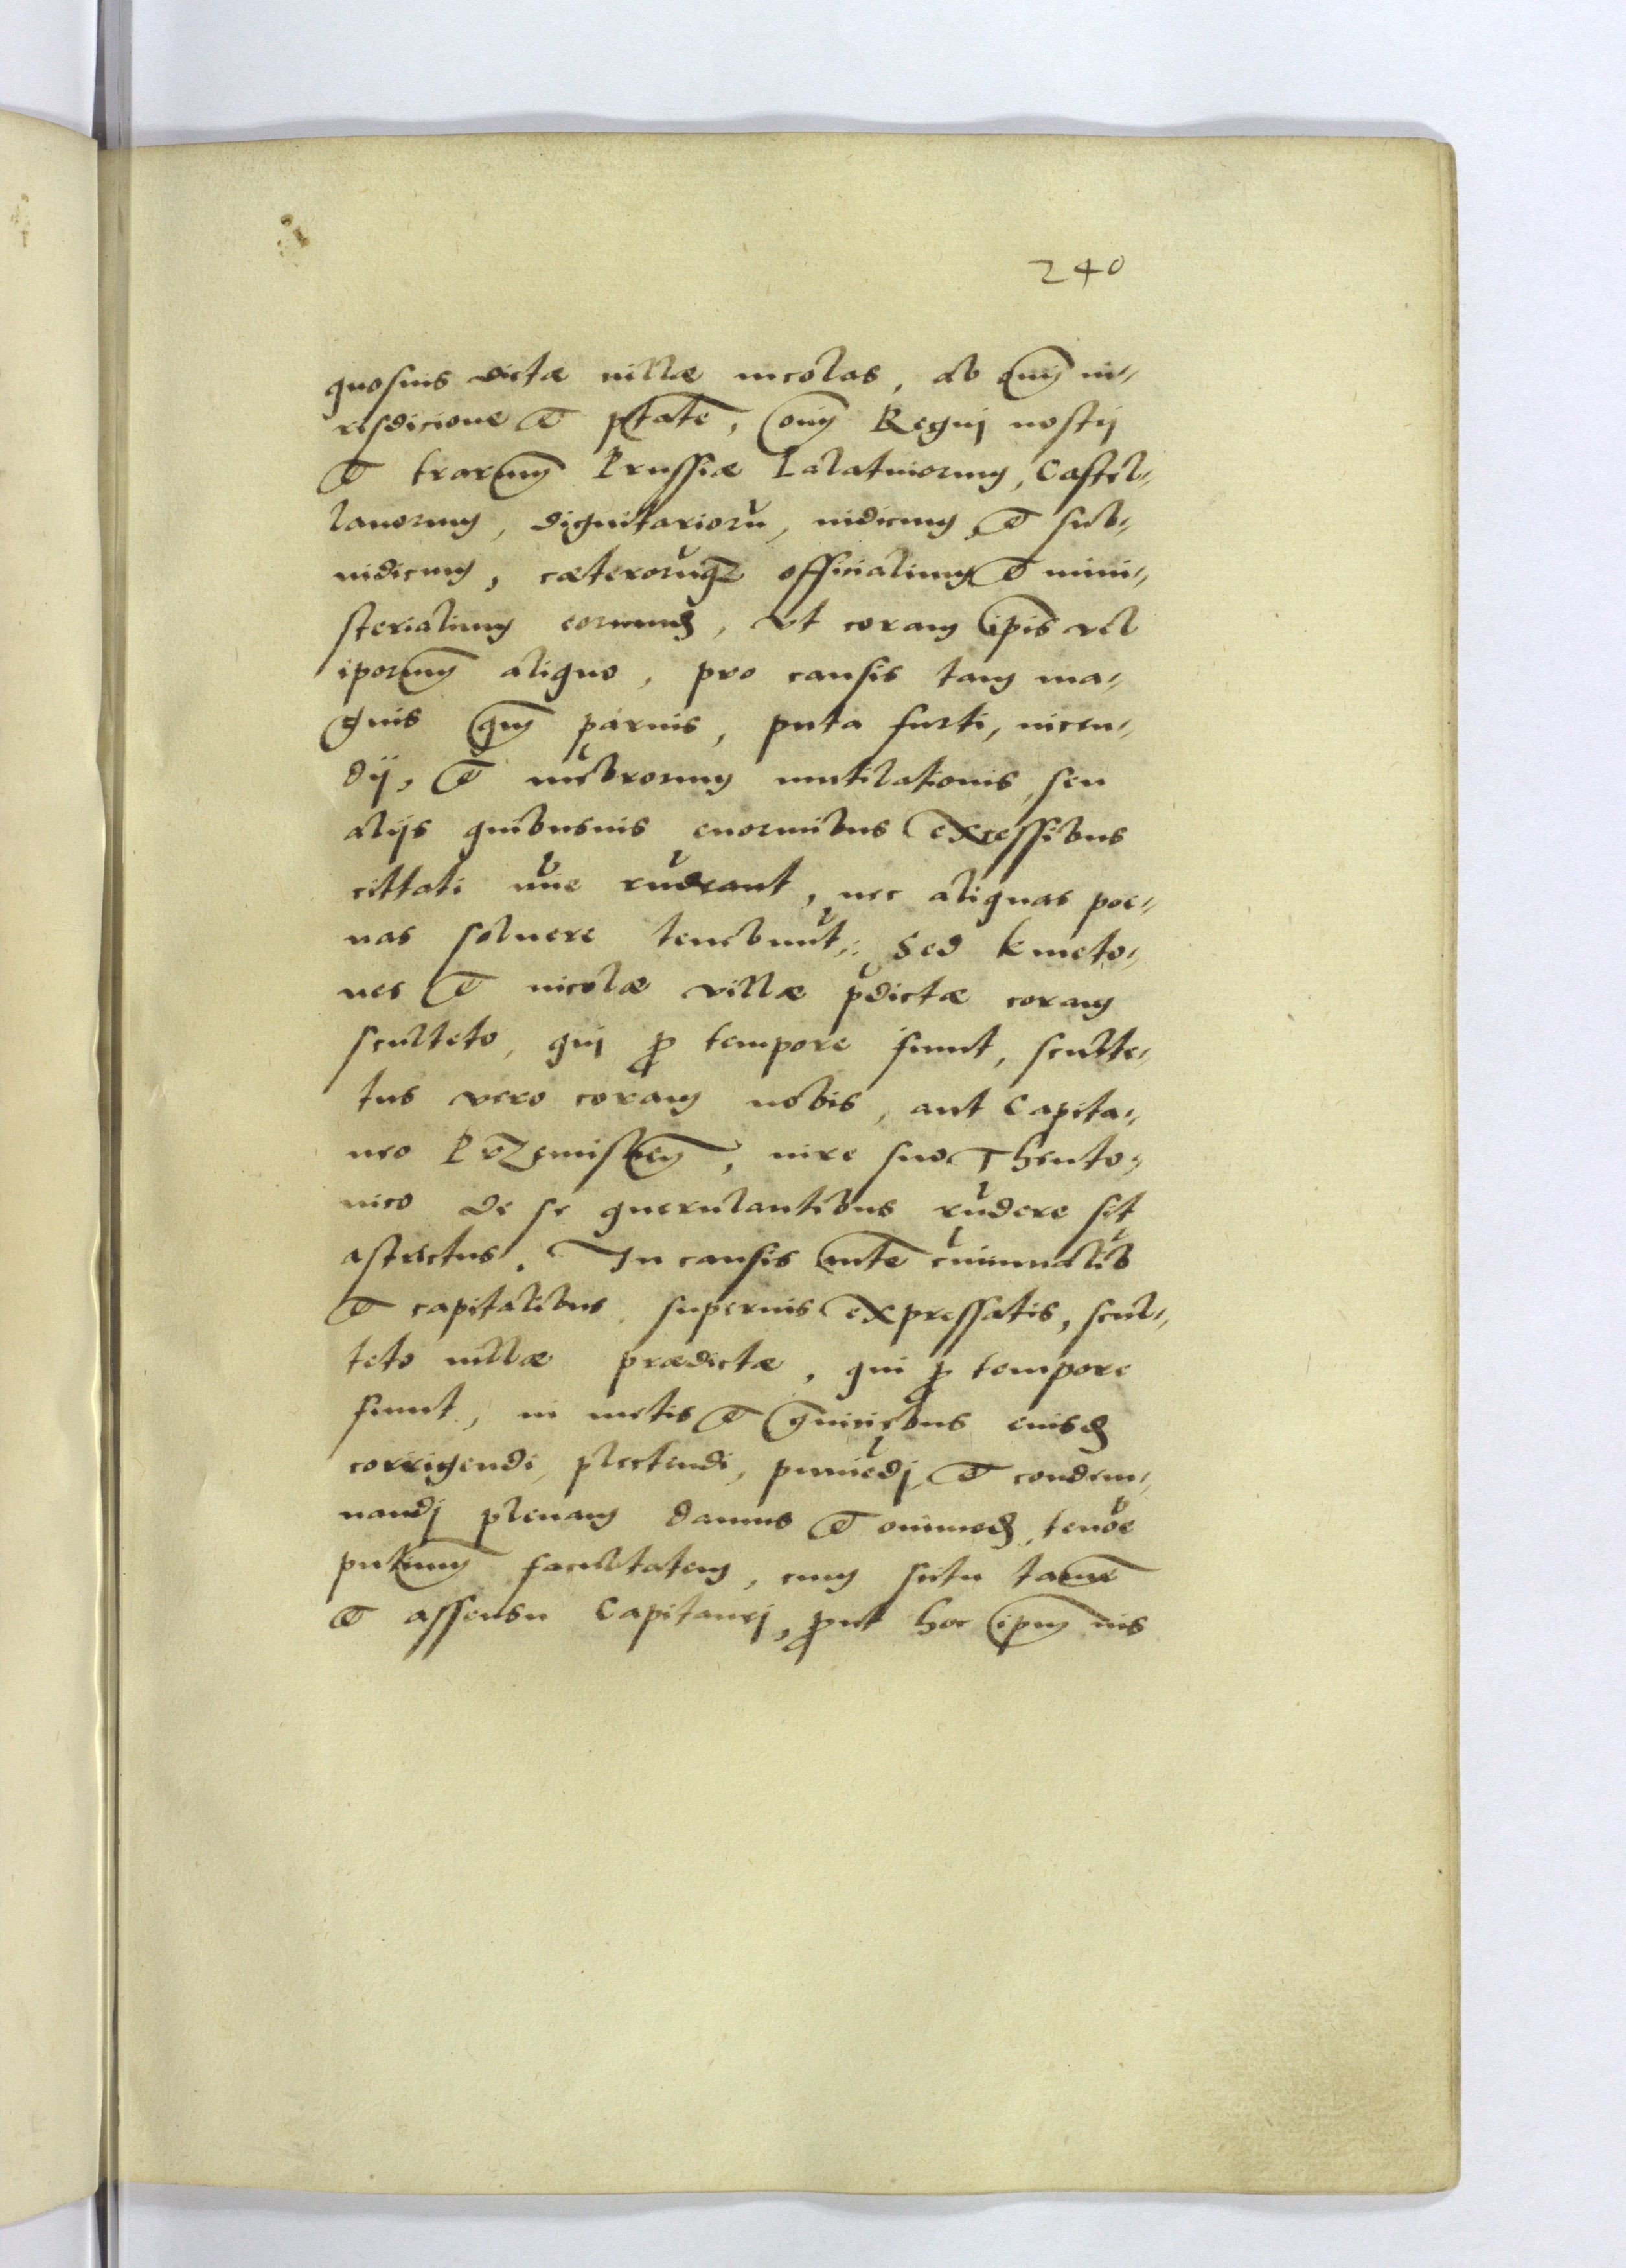 240
quosuis dictæ uillæ incolas, ab omi iu„
risdicione et ptate, omi Regnj nostrj
et trarum Prussiæ Palatinorum, Castel„
lanorum, dignitarioru, iudicum et sub„
iudicum, cæterorūq3 officialium et mini„
sterialium eorumd, vt coram ipis vel
iporum aliquo, pro causis tam ma„
gnis qm paruis, puta furti, incen„
dij, et mēbrorum mutilationis, seu
alijs quibusuis enormibus excessibus
cittati mīe rn̄deant, nec aliquas poe„
nas soluere tenebunt. Sed kmeto„
nes et incolæ villæ p̄dictæ coram
sculteto, qui p tempore fuint, sculte„
tus vero coram nobis, aut Capita„
neo Przemislien, iure suo Theuto„
nico de se querulantibus rn̄dere sit
astrictus. In causis aute criminalib
et capitalibus superius expressatis, scul„
teto uillæ prædictæ, qui p tempore
fuint, in metis et gnicicbus eiusd
corrigendi, plectendi, puniēdj et condem„
nandj plenam damus et omimod, tenōe
pntium facultatem, cum scitu tamen
et assensu Capitanej, put hoc ipm ius